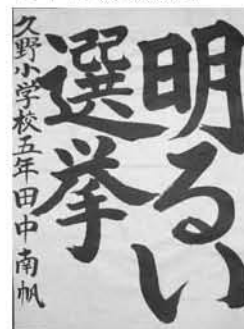 明るい
選挙
久野小学校五年田中南帆